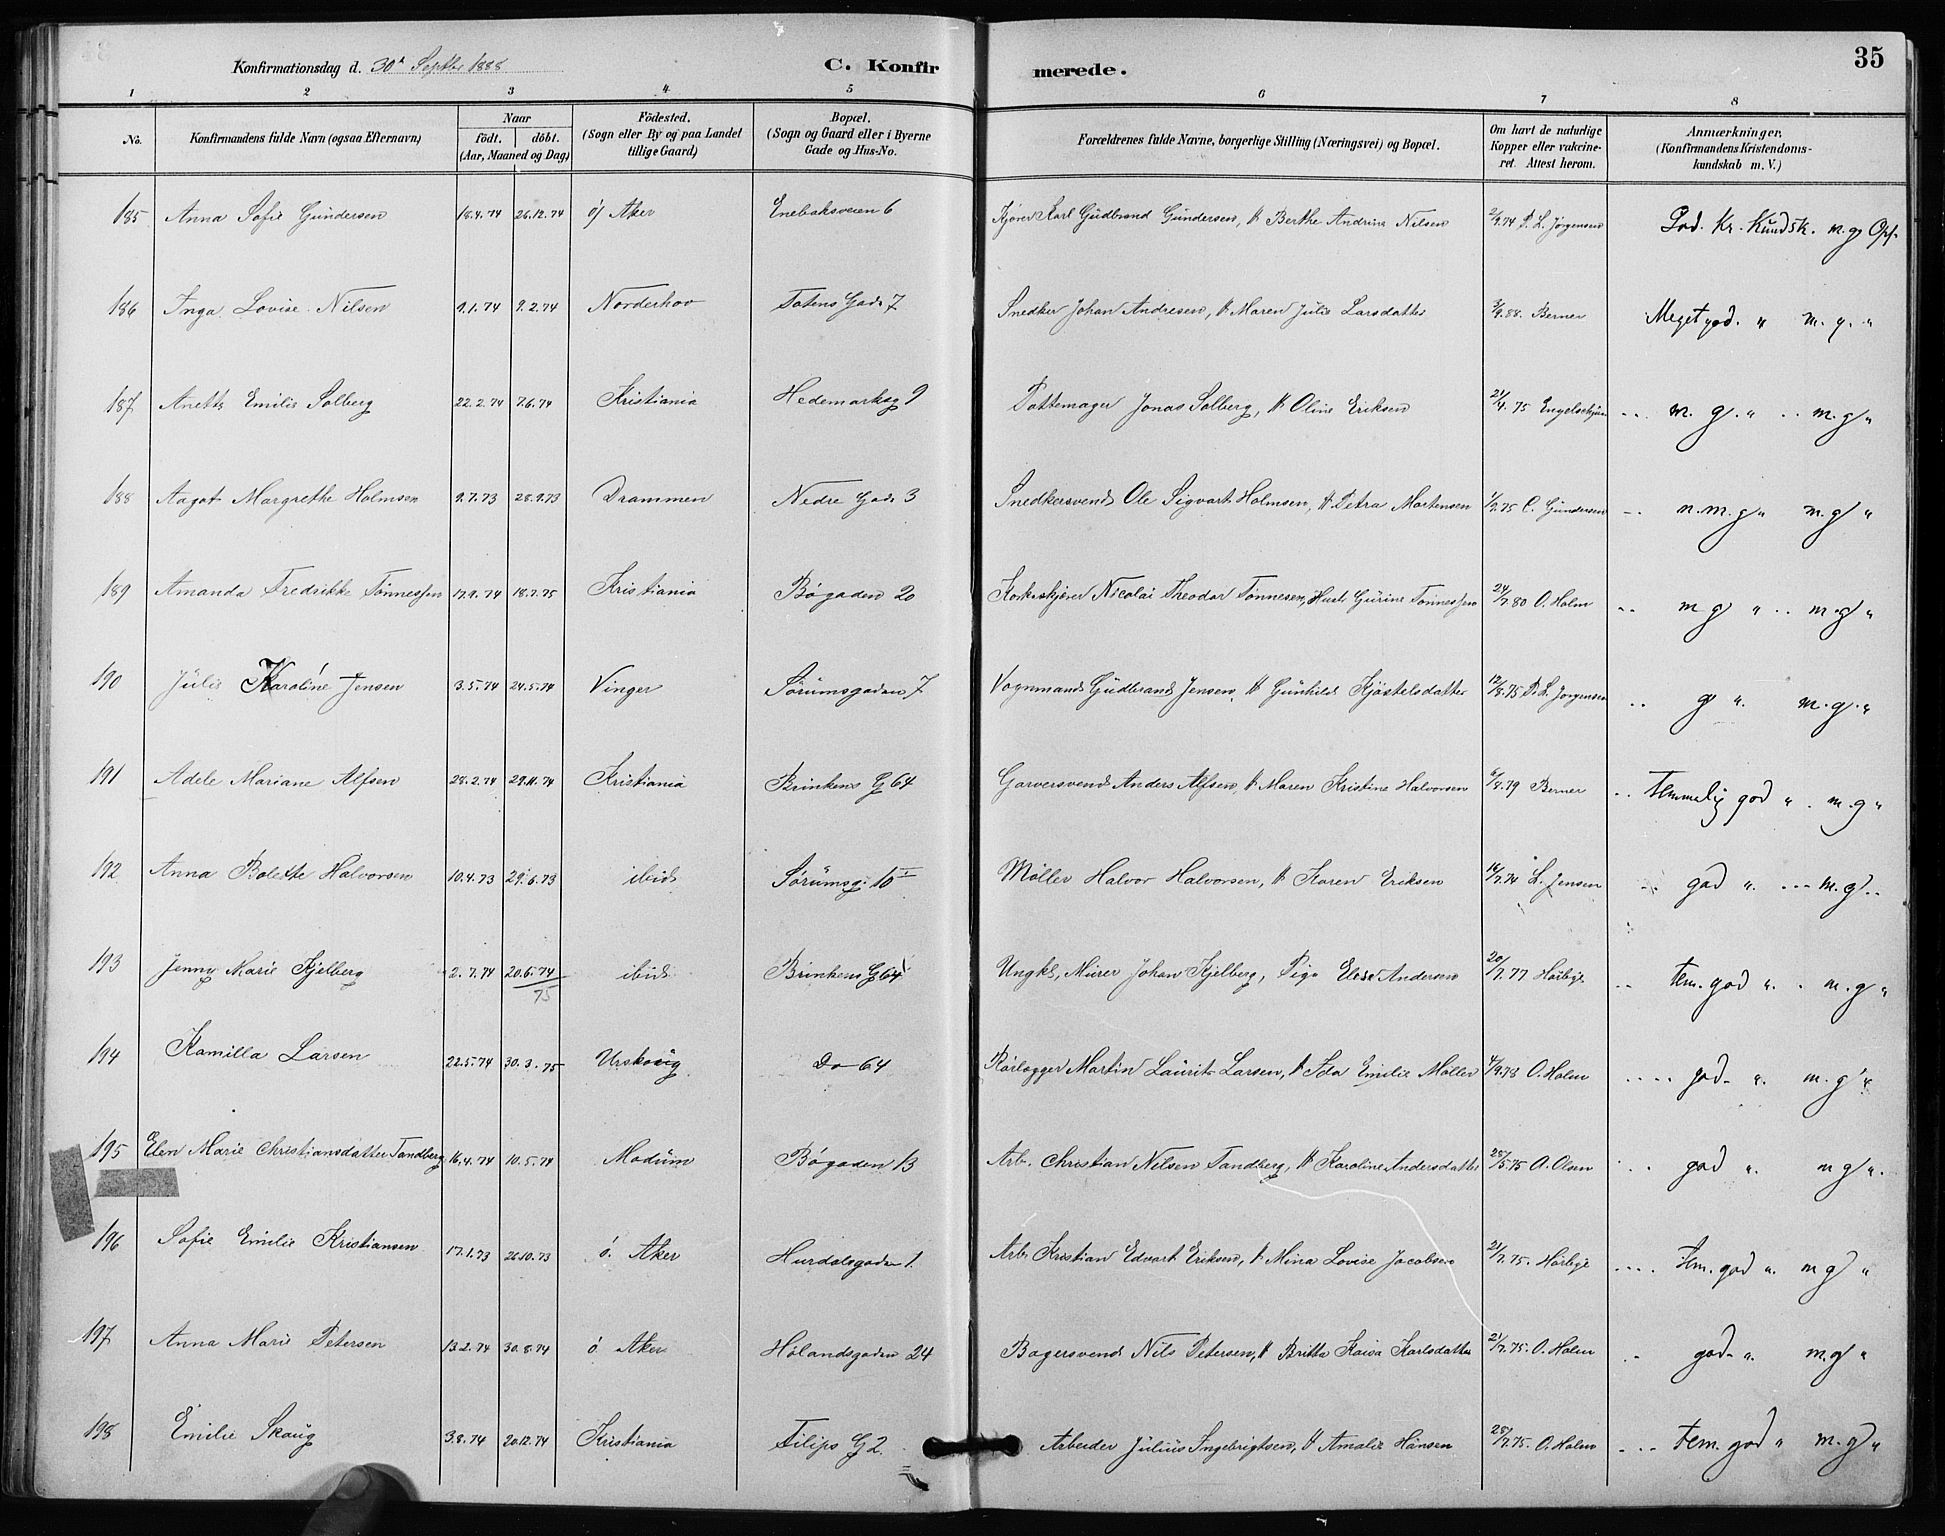 Konfirmationsdag d. 30te Septbr 1888 C. Konfirmerede. 35
1 2 3 4 5 6 7 8
No. Konfirmandens fulde Navn (ogsaa Efternavn) Naar født. døbt. (Aar, Maaned og Dag) Fødested. (Sogn eller By og paa Landet tillige Gaard) Bopæl. (Sogn og Gaard eller i Byerne Gade og Hus-No. Forældrenes fulde Navne, borgerlige Stilling (Næringsvei) og Bopæl. Om havt de naturlige Kopper eller vakcineret. Attest herom. Anmærkninger. (Konfirmandens Kristendomskundskab m. V.)
185 Anna Sofie Gundersen 18.4.74 26.12.74 ø/ Aker Enebaksveien 6 Kjører Karl Gudbrand Gundersen, H Berthe Andrine Nilsen 2/9.74 P. L. Jørgensen God. Kr. Kundsk. m. g. Opf.
186 Inga Lovise Nilsen 9.1.74 9.2.74 Norderhov Totens Gade 7 Snedker Johan Andresen, H Maren Julie Larsdatter 3/9.88. Berner Meget god. " m. g. "
187 Anette Emilie Solberg 22.2.74 7.6.74 Kristiania Hedemarksg 9 Pottemager Jonas Solberg, H Oline Eriksen 21/4.75 Engelschjøn m. g. " m. g "
188 Aagot Margrethe Holmsen 9.7.73 28.9.73 Drammen Nedre Gade 3 Snedkersvend Ole Sigvart Holmsen, H Petra Mortensen 1/9.75 C. Gundersen n. m. g " m. g "
189 Amanda Fredrikke Tønnessen 17.9.74 18.7.75 Kristiania Bøgaden 20 Korkeskjærer Nicolai Theodor Tønnesen, Hustr Gurine Tønnessen 24/7.80 O. Holm m g " m. g "
190 Julie Karoline Jensen 3.5.74 24.5.74 Vinger Sørumsgaden 7 Vognmand Gudbrand Jensen, H Gunhild Kjøstelsdatter 12/8.75 P. L. Jørgensen g " m. g. "
191 Adele Mariane Alfsen 28.2.74 29.11.74 Kristiania Brinkens G 64 Garversvend Anders Alfsen, H Maren Kristine Halvorsen 6/8.79 Berner Temmelig god " m. g "
192 Anna Bolette Halvorsen 10.4.73 29.6.73 ibid. Sørumsg. 10 I Møller Halvor Halvorsen, H Karen Eriksen 16/7.74 L. Jensen god " m. g
193 Jenny Marie Kjelberg 2.7.74 20.6.74/75 ibid. Brinkens G 64 Ungkl, Murer Johan Kjelberg, Pige Elise Andersen 20/7.77 Hørbye tem. god " m. g "
194 Kamilla Larsen 22.5.74 30.3.75 Urskoug Do 64 Rørlægger Martin Laurits Larsen, H Ida Emilie Møller 4/9.78 O. Holm god " m. g "
195 Elen Marie Christiansdatter Tandberg 16.4.74 10.5.74 Modum Bøgaden 13 Arb. Christian Nilsen Tandberg, H Karoline Andersdatter 25/5.75 A. Olsen god " m g "
196 Sofie Emilie Kristiansen 17.1.73 26.10.73 ø. Aker Hurdalsgaden 1. Arb Kristian Edvart Eriksen, H Mina Lovise Jacobsen 21/7.75. Hørbye tem. god " m g "
197 Anna Marie Petersen 13.2.74 30.8.74 ø. Aker Hølandsgaden 24 Bagersvend Nils Petersen, H Britta Kaisa Karlsdatter 21/7.75. O. Holm god " m. g "
198 Emilie Skaug 3.8.74 20.12.74 Kristiania Filips G 2 Arbeider Julius Ingebrigtsen, H Amalie Hansen 28/7.75. O. Holm tem. god " m. g. "